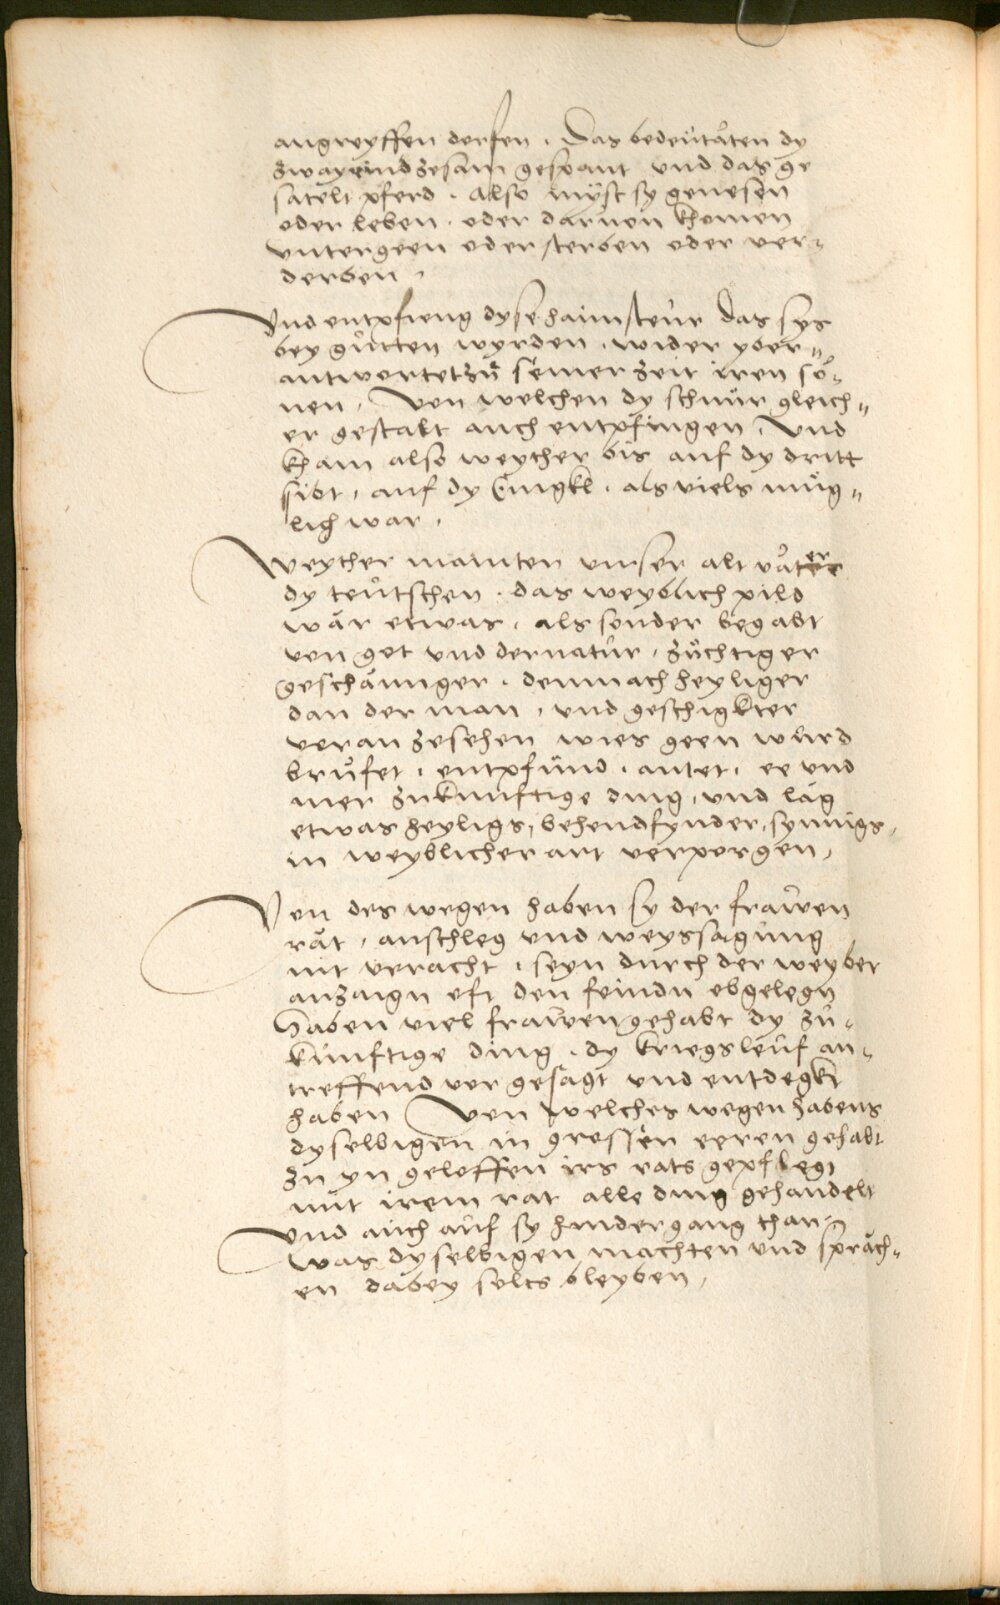 angreyffen derfen. Das bedeutåten dy
zway rind zesam gespant und das ge
satelt pferd. Also müst sy genesen
oder leben. oder darnen khomen
untergeen oder sterben oder ver-
derben.
Und entpfieng dyse haimsteur das sys
bey gůtten wyrden. wider yber-
antwortet zů seiner zeit iren sö-
nen, Von welchen dy schnůr gleich-
er gestalt auch entpfingen, Und
kham also weyther bis auf dy dritt
sibt, auf dy Eningkl. als viels müg-
lich war.
Weyther mainten unser alt våter
dy teůtschen. das weyblich pild
wår etwas, als sonder begabt
von got und der natur, zůchtiger
geschåmiger. demnach heyliger
dan der man, und geschigkter
voran zesehen wies geen würd
brůfet, entpfünd. antet, ee und
mer zukunftige ding, und låg
etwas heyligs, behendfynder, synnigs,
in weyblicher art verporgen,
Von des wegen haben sy der frawen
råt, anschleg und weyssagung
nit veracht, seyn durch der weyber
anzaign oft den feindn obgelegn
Haben viel frawen gehabt dy zů-
künftige ding. dy kriegsleuf an-
treffend vor gesagt und entdegkt
haben Von welches wegen habens
dyselbigen in grossen eeren gehabt
zu yn geloffen irs rats gepflegt
mit irem rat alle ding gehandelt
Und auch auf sy hindergang than
was dyselbigen machten und spräch-
en dabey solts bleyben,